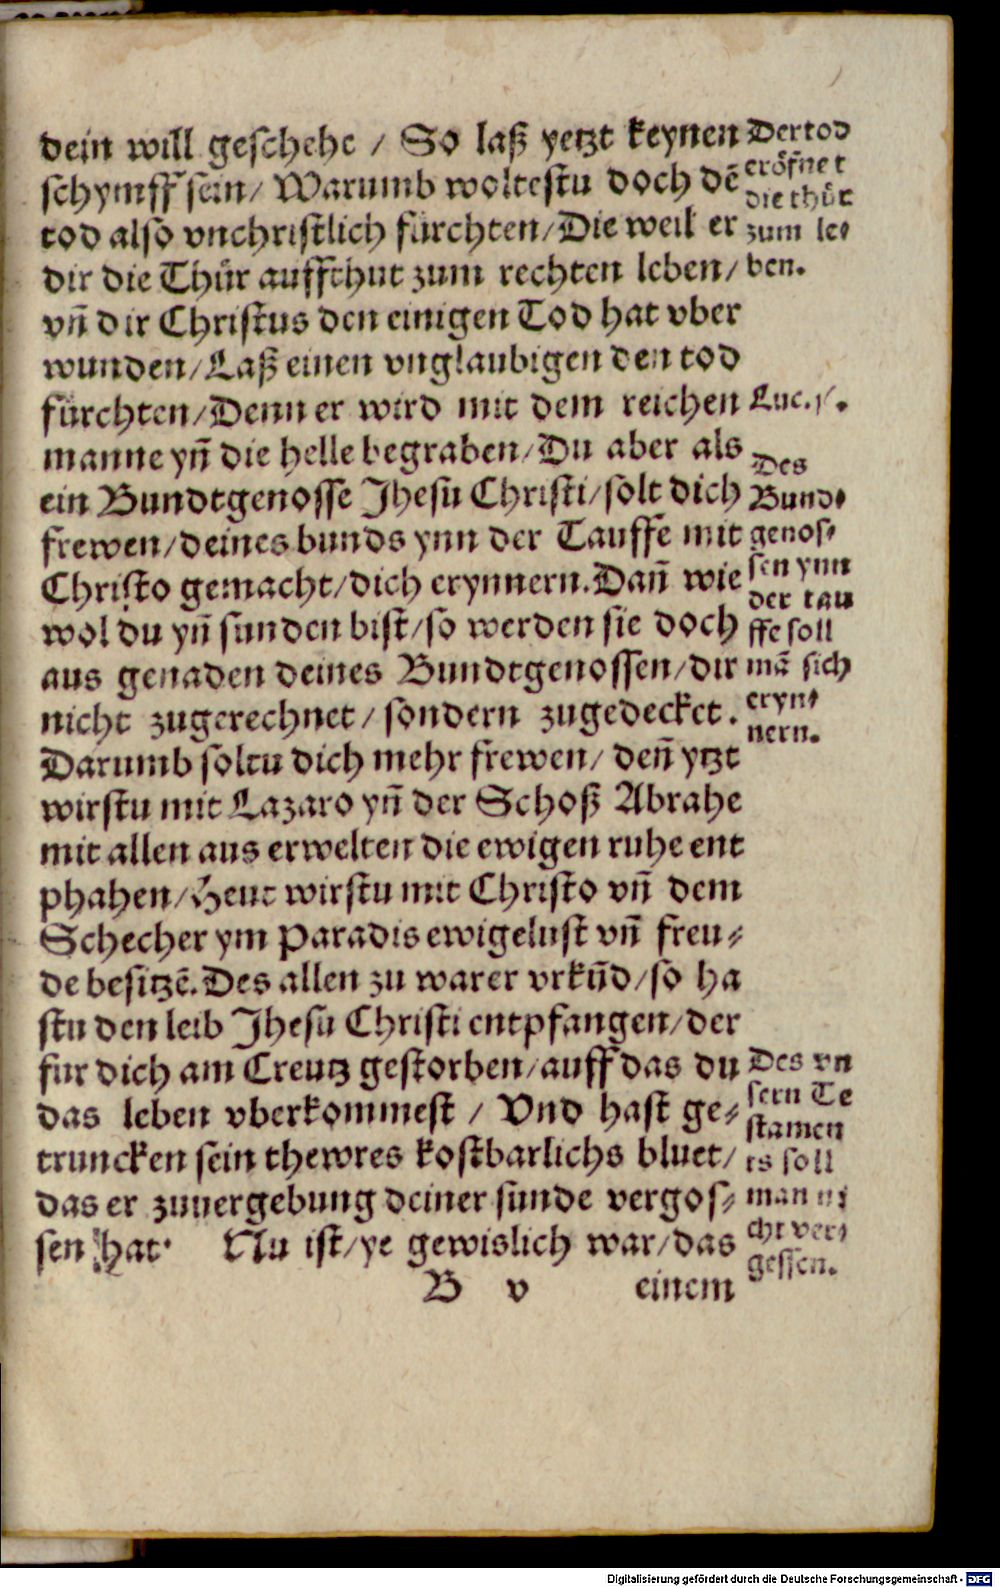 dein will geschehe / So laß yetzt keynen
schympff sein / Warumb woltestu doch dē
tod also vnchristlich fürchten / Die weil er
dir die Thür auffthut zum rechten leben /
vñ dir Christus den einigen Tod hat vber
wunden / Laß einen vnglaubigen den tod
fürchten / Denn er wird mit dem reichen
manne yñ die helle begraben / Du aber als
ein Bundtgenosse Jhesu Christi / solt dich
frewen / deines bunds ynn der Tauffe mit
Christo gemacht / dich erynnern. Dañ wie
wol du yñ sunden bist / so werden sie doch
aus genaden deines Bundtgenossen / dir
nicht zugerechnet / sondern zugedecket.
Darumb soltu dich mehr frewen / deñ ytzt
wirstu mit Lazaro yñ der Schoß Abrahe
mit allen aus erwelten die ewigen ruhe ent
phahen / Heut wirstu mit Christo vñ dem
Schecher ym Paradis ewige lust vñ freu⸗
de besitzē. Des allen zu warer vrkūd / so ha
stu den leib Jhesu Christi entpfangen / der
fur dich am Creutz gestorben / auff das du
das leben vberkommest / Vnd hast ge⸗
truncken sein thewres kostbarlichs bluet /
das er zuuergebung deiner sunde vergos⸗
sen hat. Nu ist / ye gewislich war / das
B v einem
Der tod
eröfnet
die thür
zum le⸗
ben.
Luc.
Des
Bund⸗
genos⸗
sen ynn
der tau
ffe soll
mā sich
eryn⸗
nern.
Des vn
sern Te
stamen
ts soll
man ni
cht ver⸗
gessen.
Digitalisierung gefördert durch die Deutsche Forschungsgemeinschaft - DFG